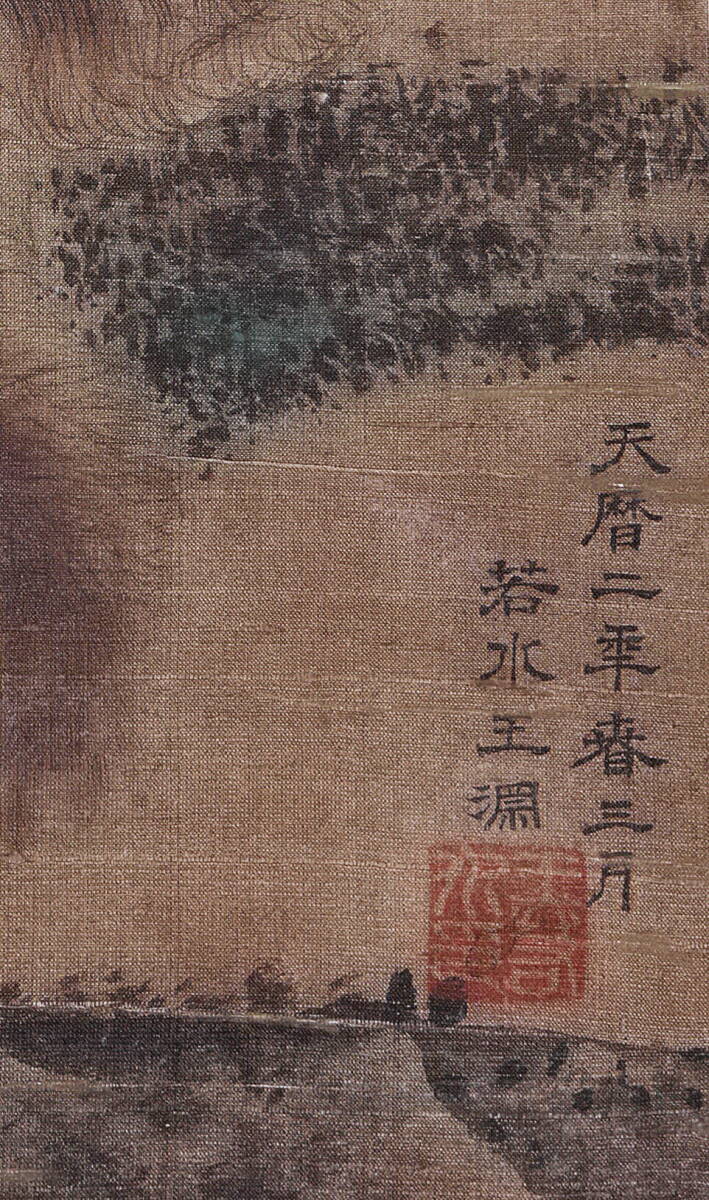 天曆二年春三月
若水王淵